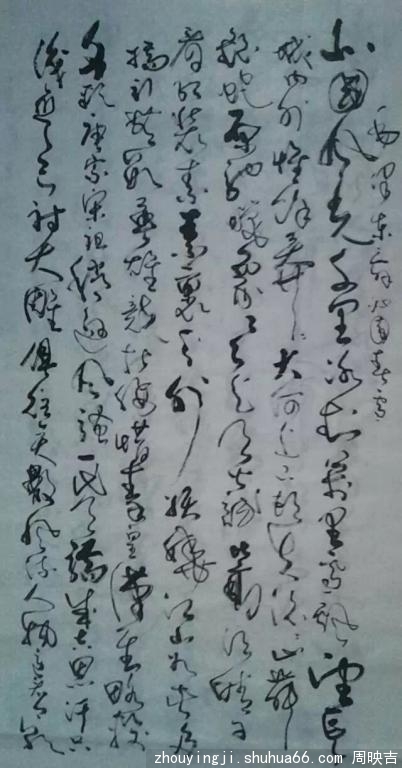 毛泽东词沁园春雪
北国风光千里冰封万里雪飘望长
城内外惟余莽莽大河上下顿失滔滔山舞
银蛇原驰蜡象欲与天公试比高须晴日
看红装素裹分外妖娆江山如此多
娇引无数英雄竞折腰惜秦皇汉武略输
文采唐宗宋祖稍逊风骚一代天骄成吉思汗只
识弯弓射大雕俱往矣数风流人物还看今朝
zhouyingji.shuhua66.com 周映吉